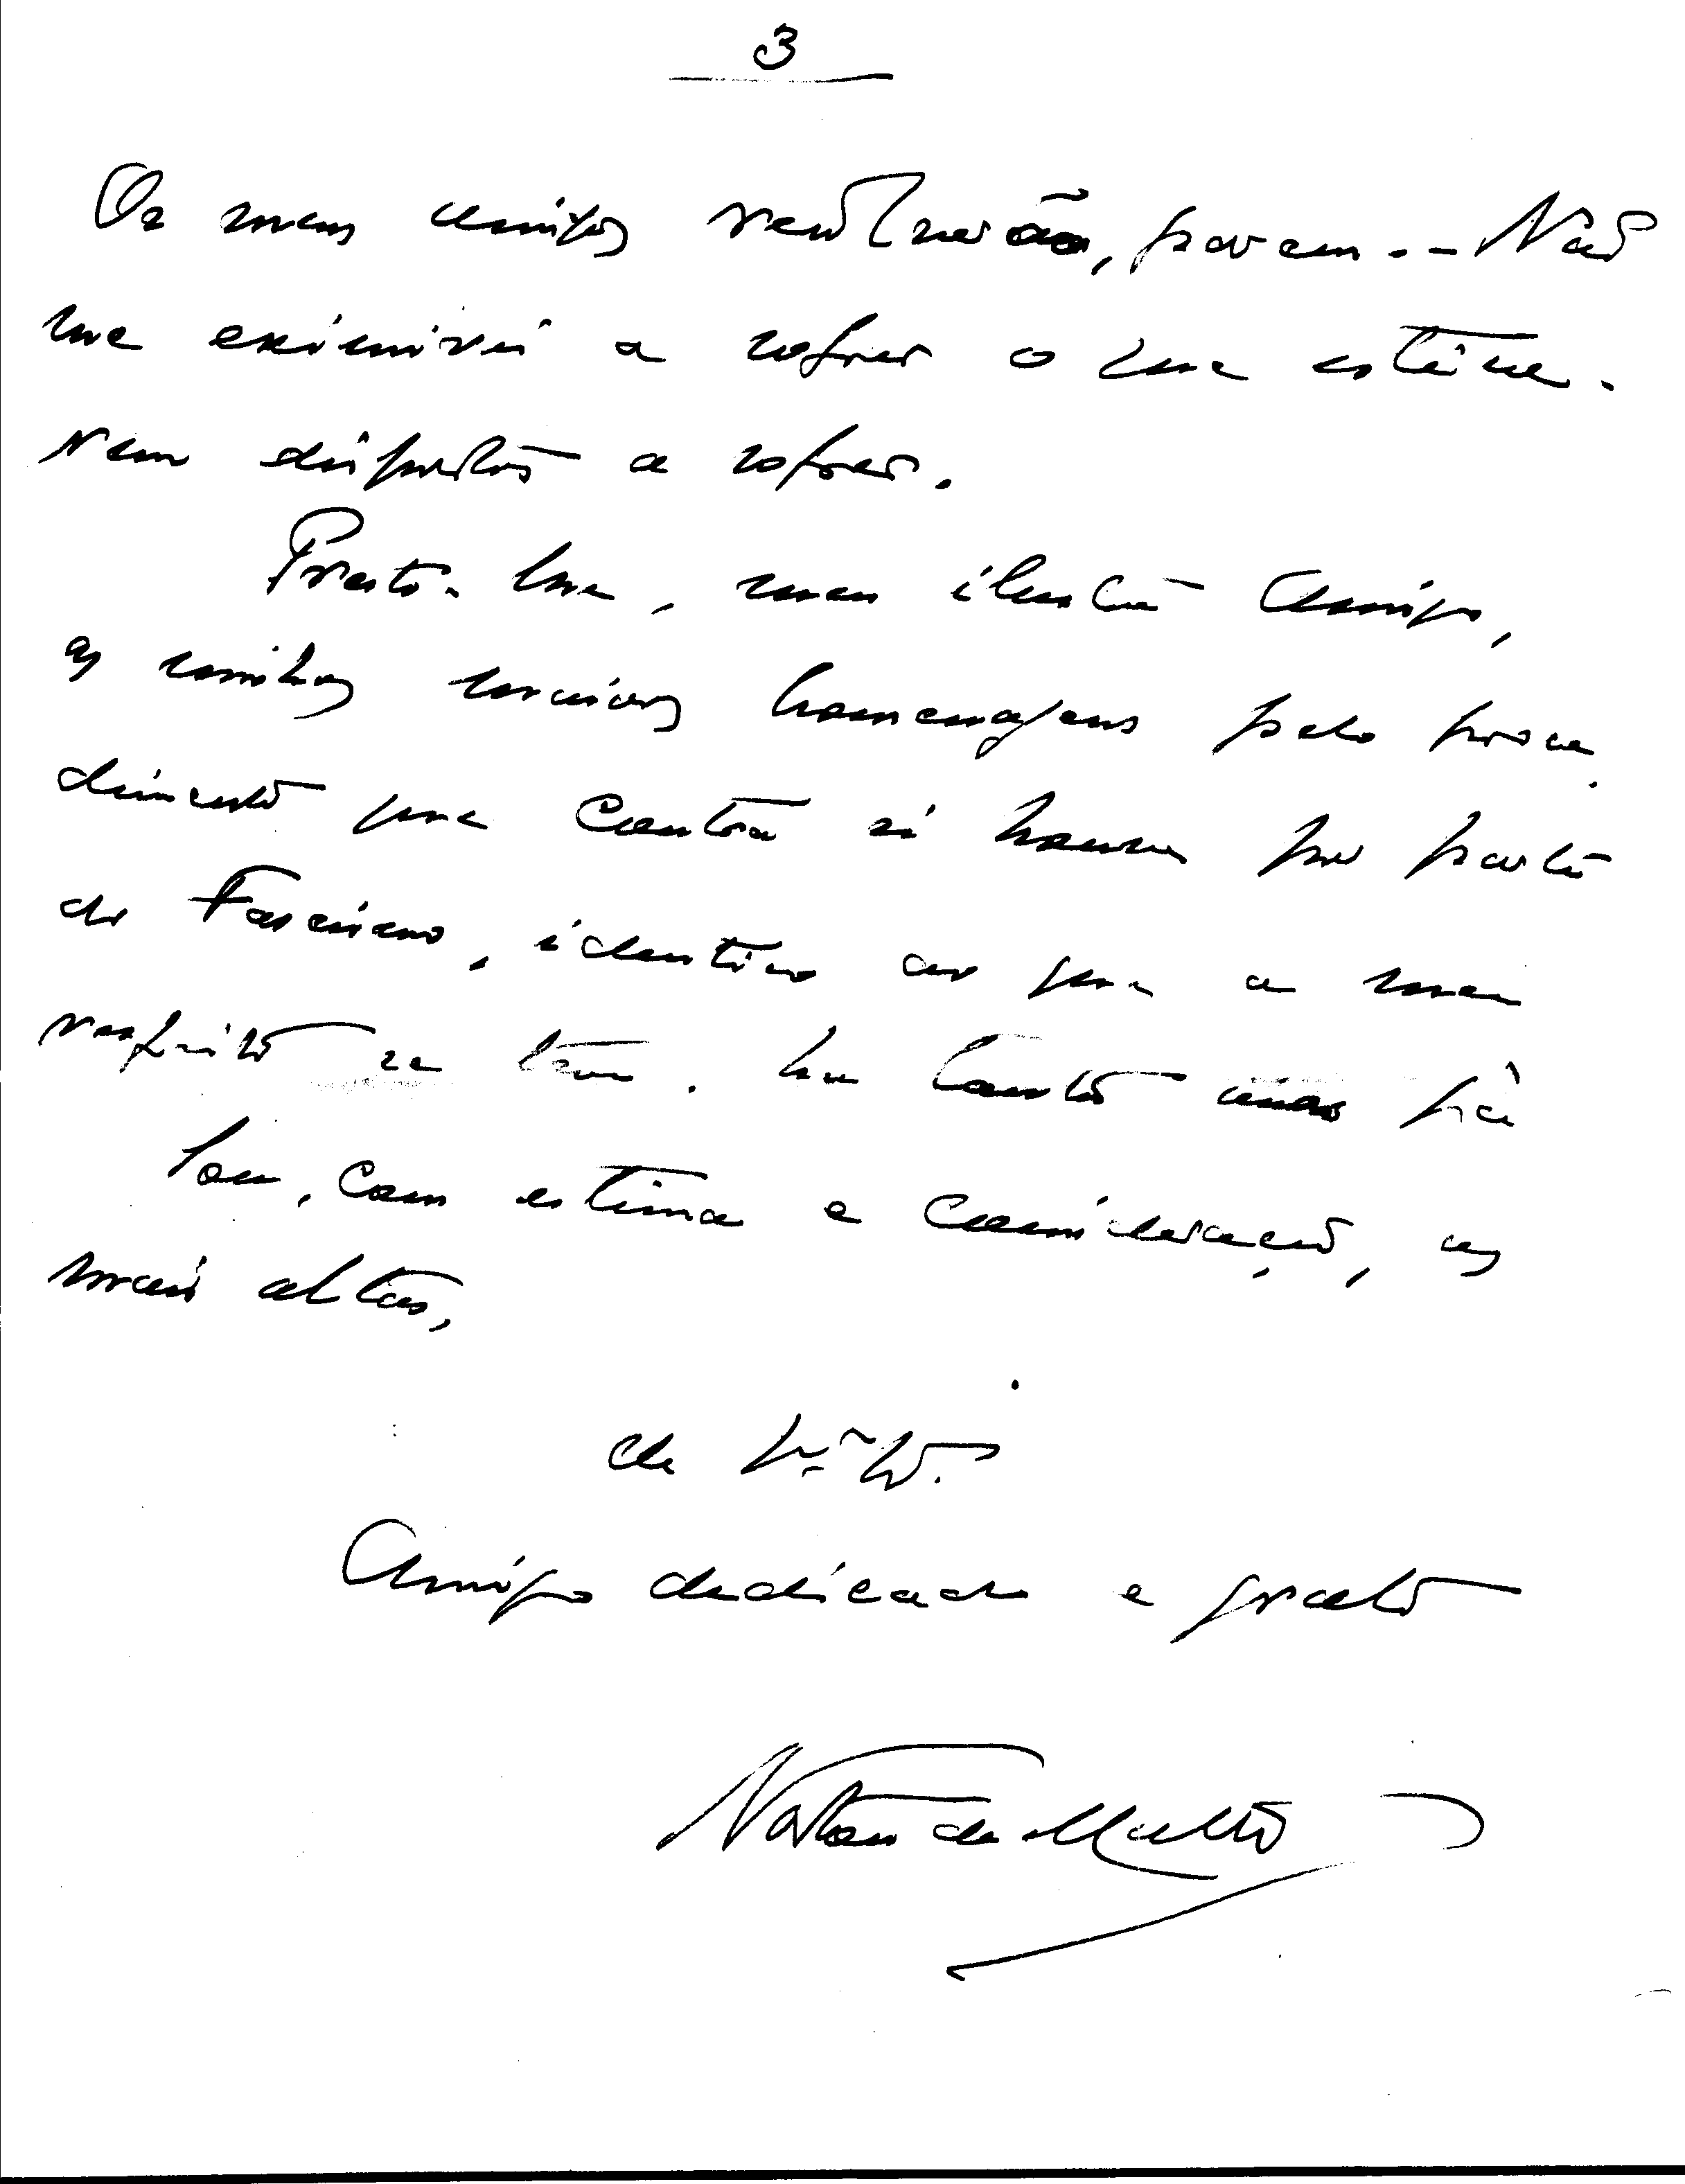 3
Os meus amigos resolverão, porem. - Não
me eximirei a sofrer o que estive-
rem dispostos a sofrer.
Presto-lhe, meu ilustre Amigo,
as minhas maiores homenagens pelo proce
dimento que contra si houve por parte
do Fascismo, identico ao que a meu
respeito se teve, ha tantos anos já
Sou, com estima e consideração, as
mais altas,
de V.
Amigo dedicado e grato
Norton de Mattos